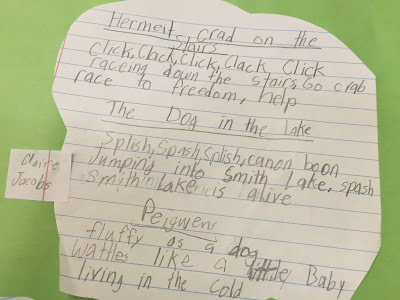 Hermeit, Crad on the
Stairs
Click, Clack, Click, Clack Click
raceing down the stairs, Go crab
race to freedom, help
The Dog in the Lake
Splish, Spash, Splish, canon boon
Jumping into Smith Lake, spash
Smith Lake is alive
Claire
Jacobs
Peigwens
fluffy as a dog
Wattles like a Baby
living in the Cold